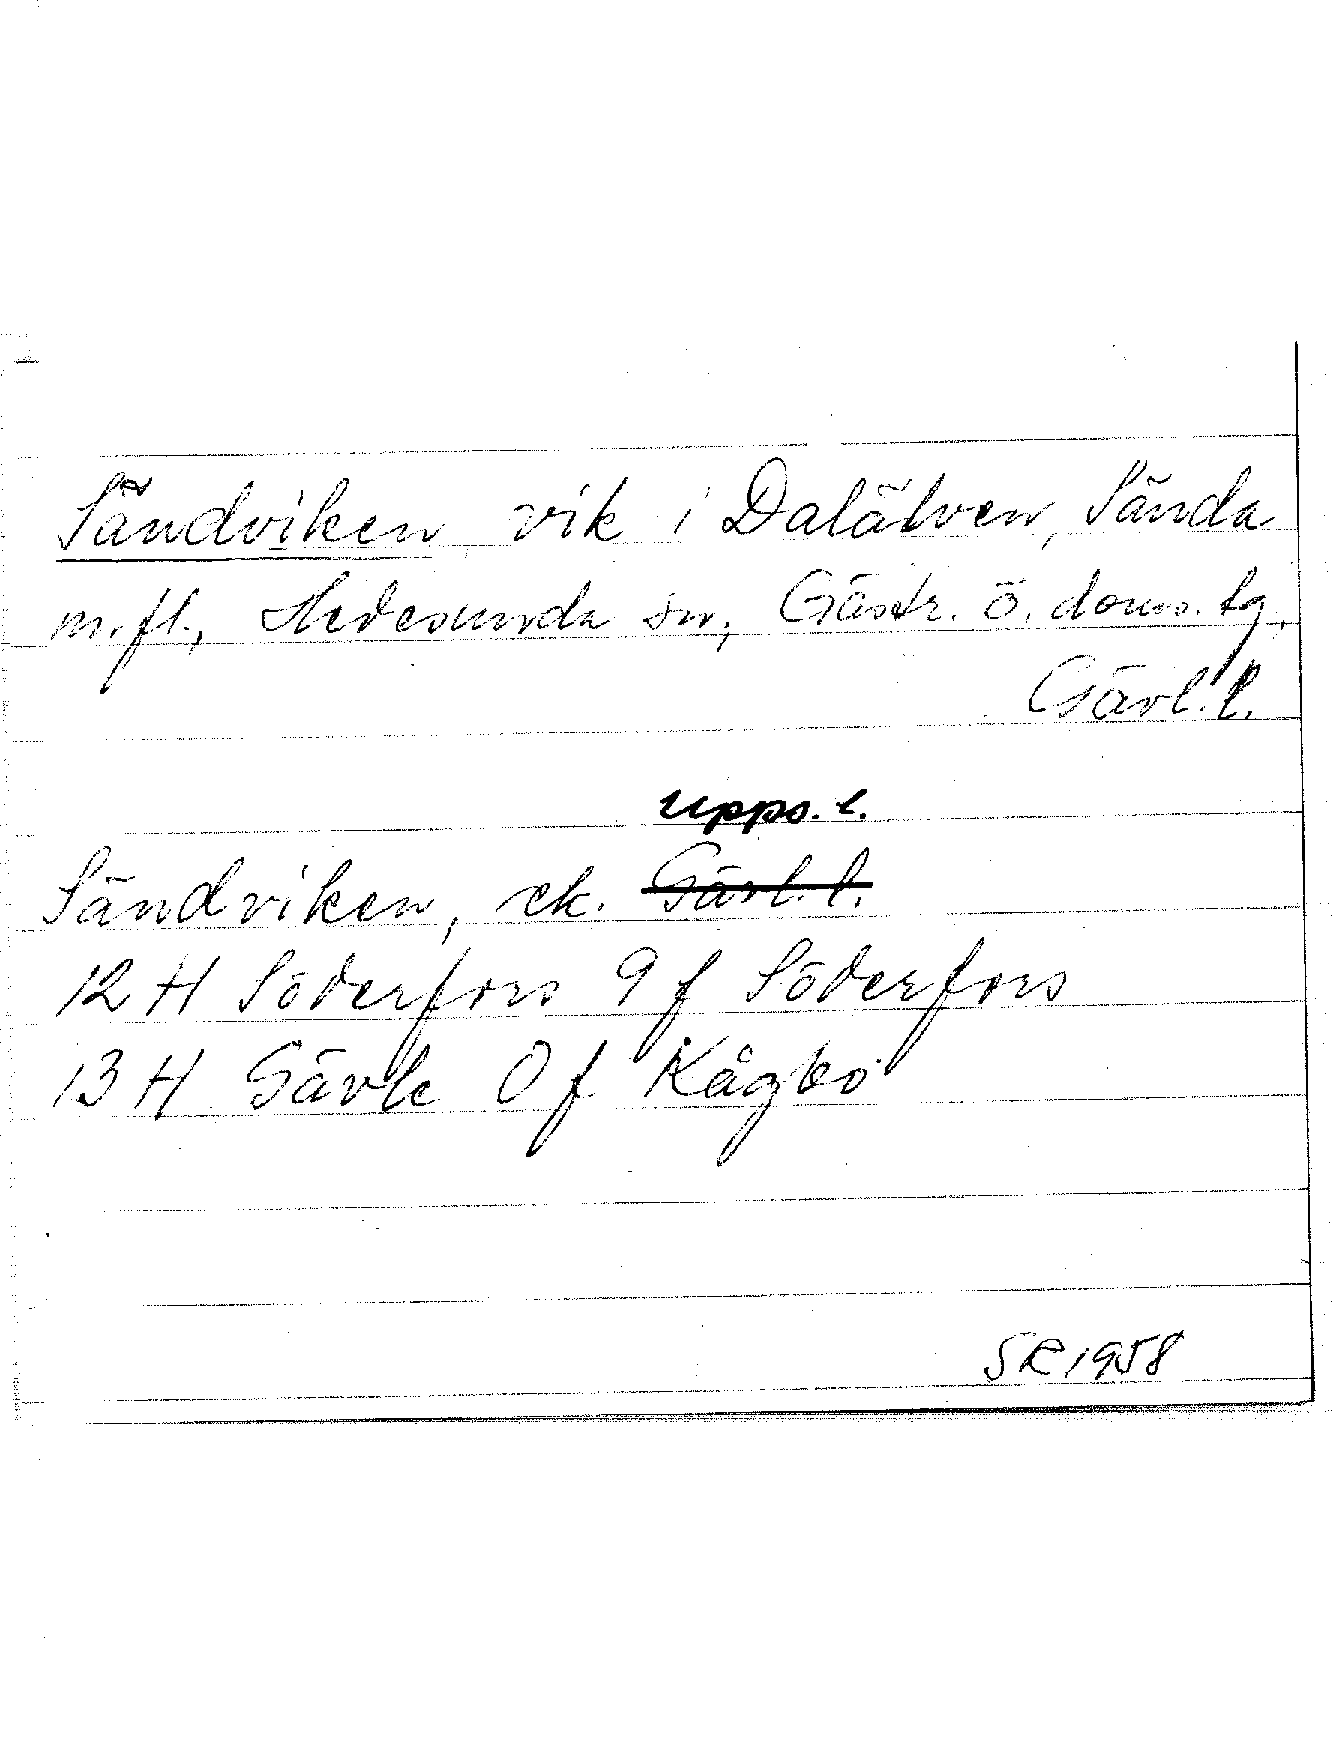 Sändviken vik i Dalälven, Sända
m.fl., Hedesunda sn, Gästr. ö. doms. tg.
Gävl. l.
Upps. l.
Sändviken, ek. Gävl. l.
12 H Söderfors 9 f Söderfors
13 H Gävle 0 f Kågbo
SR 1958